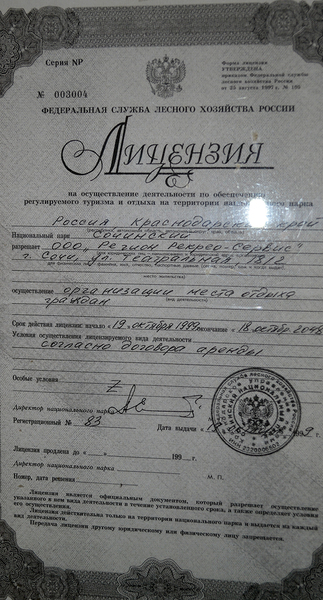 Серия NP
Форма лицензии
УТВЕРЖДЕНА
приказом Федеральной службы
лесного хозяйства России
от 25 августа 1997 г. №
№ 003004
ФЕДЕРАЛЬНАЯ СЛУЖБА ЛЕСНОГО ХОЗЯЙСТВА РОССИИ
ЛИЦЕНЗИЯ
на осуществление деятельности по обеспечению
регулируемого туризма и отдыха на территории парка
Россия Краснодарский край
Национальный парк Сочинский
разрешает ООО „Регион Рекрео-Сервис"
г. Сочи, ул. Театральная
осуществление организации места отдыха
граждан
(вид деятельности)
Срок действия лицензии: начало «19» октября 1999 окончание «18» октябр 2048
Условия осуществления лицензируемого вида деятельности
согласно договора аренды
Особые условия Z
Директор национального парка
Регистрационный № 83
Дата выдачи
Лицензия продлена до «
199
Директор национального парка
М. П.
Номер, дата решения
Лицензия является официальным документом, который разрешает осуществление
указанного в нем вида деятельности в течение установленного срока, а также определяет условия
его осуществления.
Лицензия действительна только на территории национального парка и выдается на каждый
вид деятельности.
Передача лицензии другому юридическому или физическому лицу запрещается.